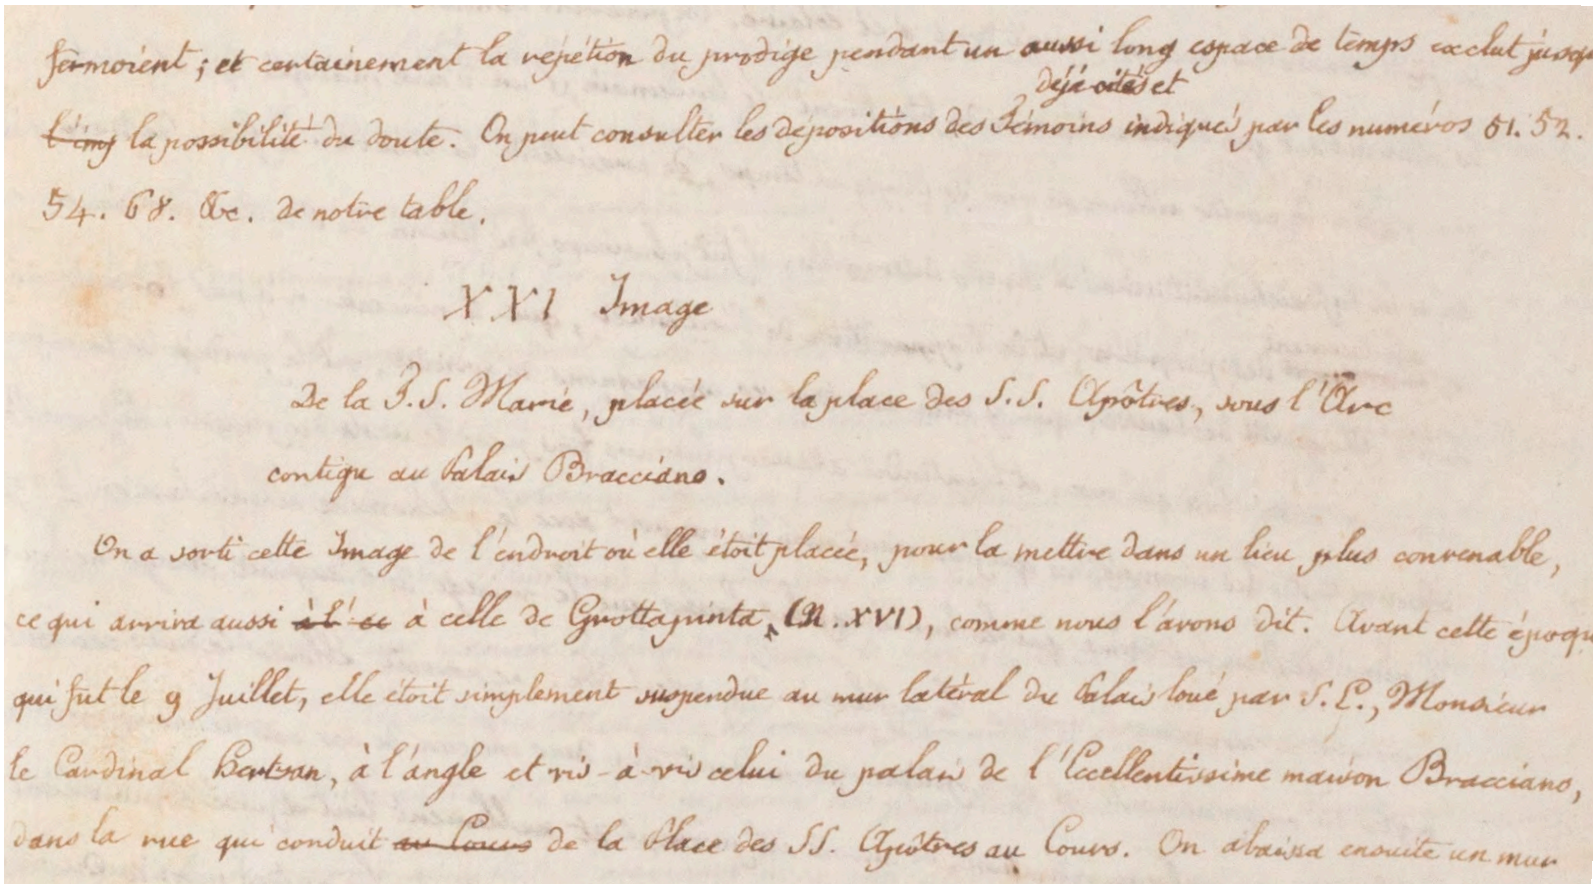 fermoient ; et certainement la repétition du prodige pendant un aussi long espace de temps exclut jusqu
déjà cités et
la possibilité du doute. On peut consulter les dépositions des Témoins indiqués par les numéros 51. 52.
54. 68. &c. de notre table.
XXI Image
De la T. S. Marie, placée sur la place des S. S. Apôtres, sous l'Arc
contigu au Palais Bracciano.
On a sorti cette Image de l'endroit où elle étoit placée, pour la mettre dans un lieu plus convenable,
ce qui arriva aussi à celle de Grottapinta, (N. XVI), comme nous l'avons dit. Avant cette époqu
qui fut le 9 Juillet, elle étoit simplement suspendue au mur latéral du Palais loué par S. E., Monsieur
le Cardinal Hertzan, à l'angle et vis-à-vis celui du palais de l'Eccellentissime maison Bracciano,
dans la rue qui conduit au Cours de la Place des SS. Apôtres au Cours. On abaissa ensuite un mur